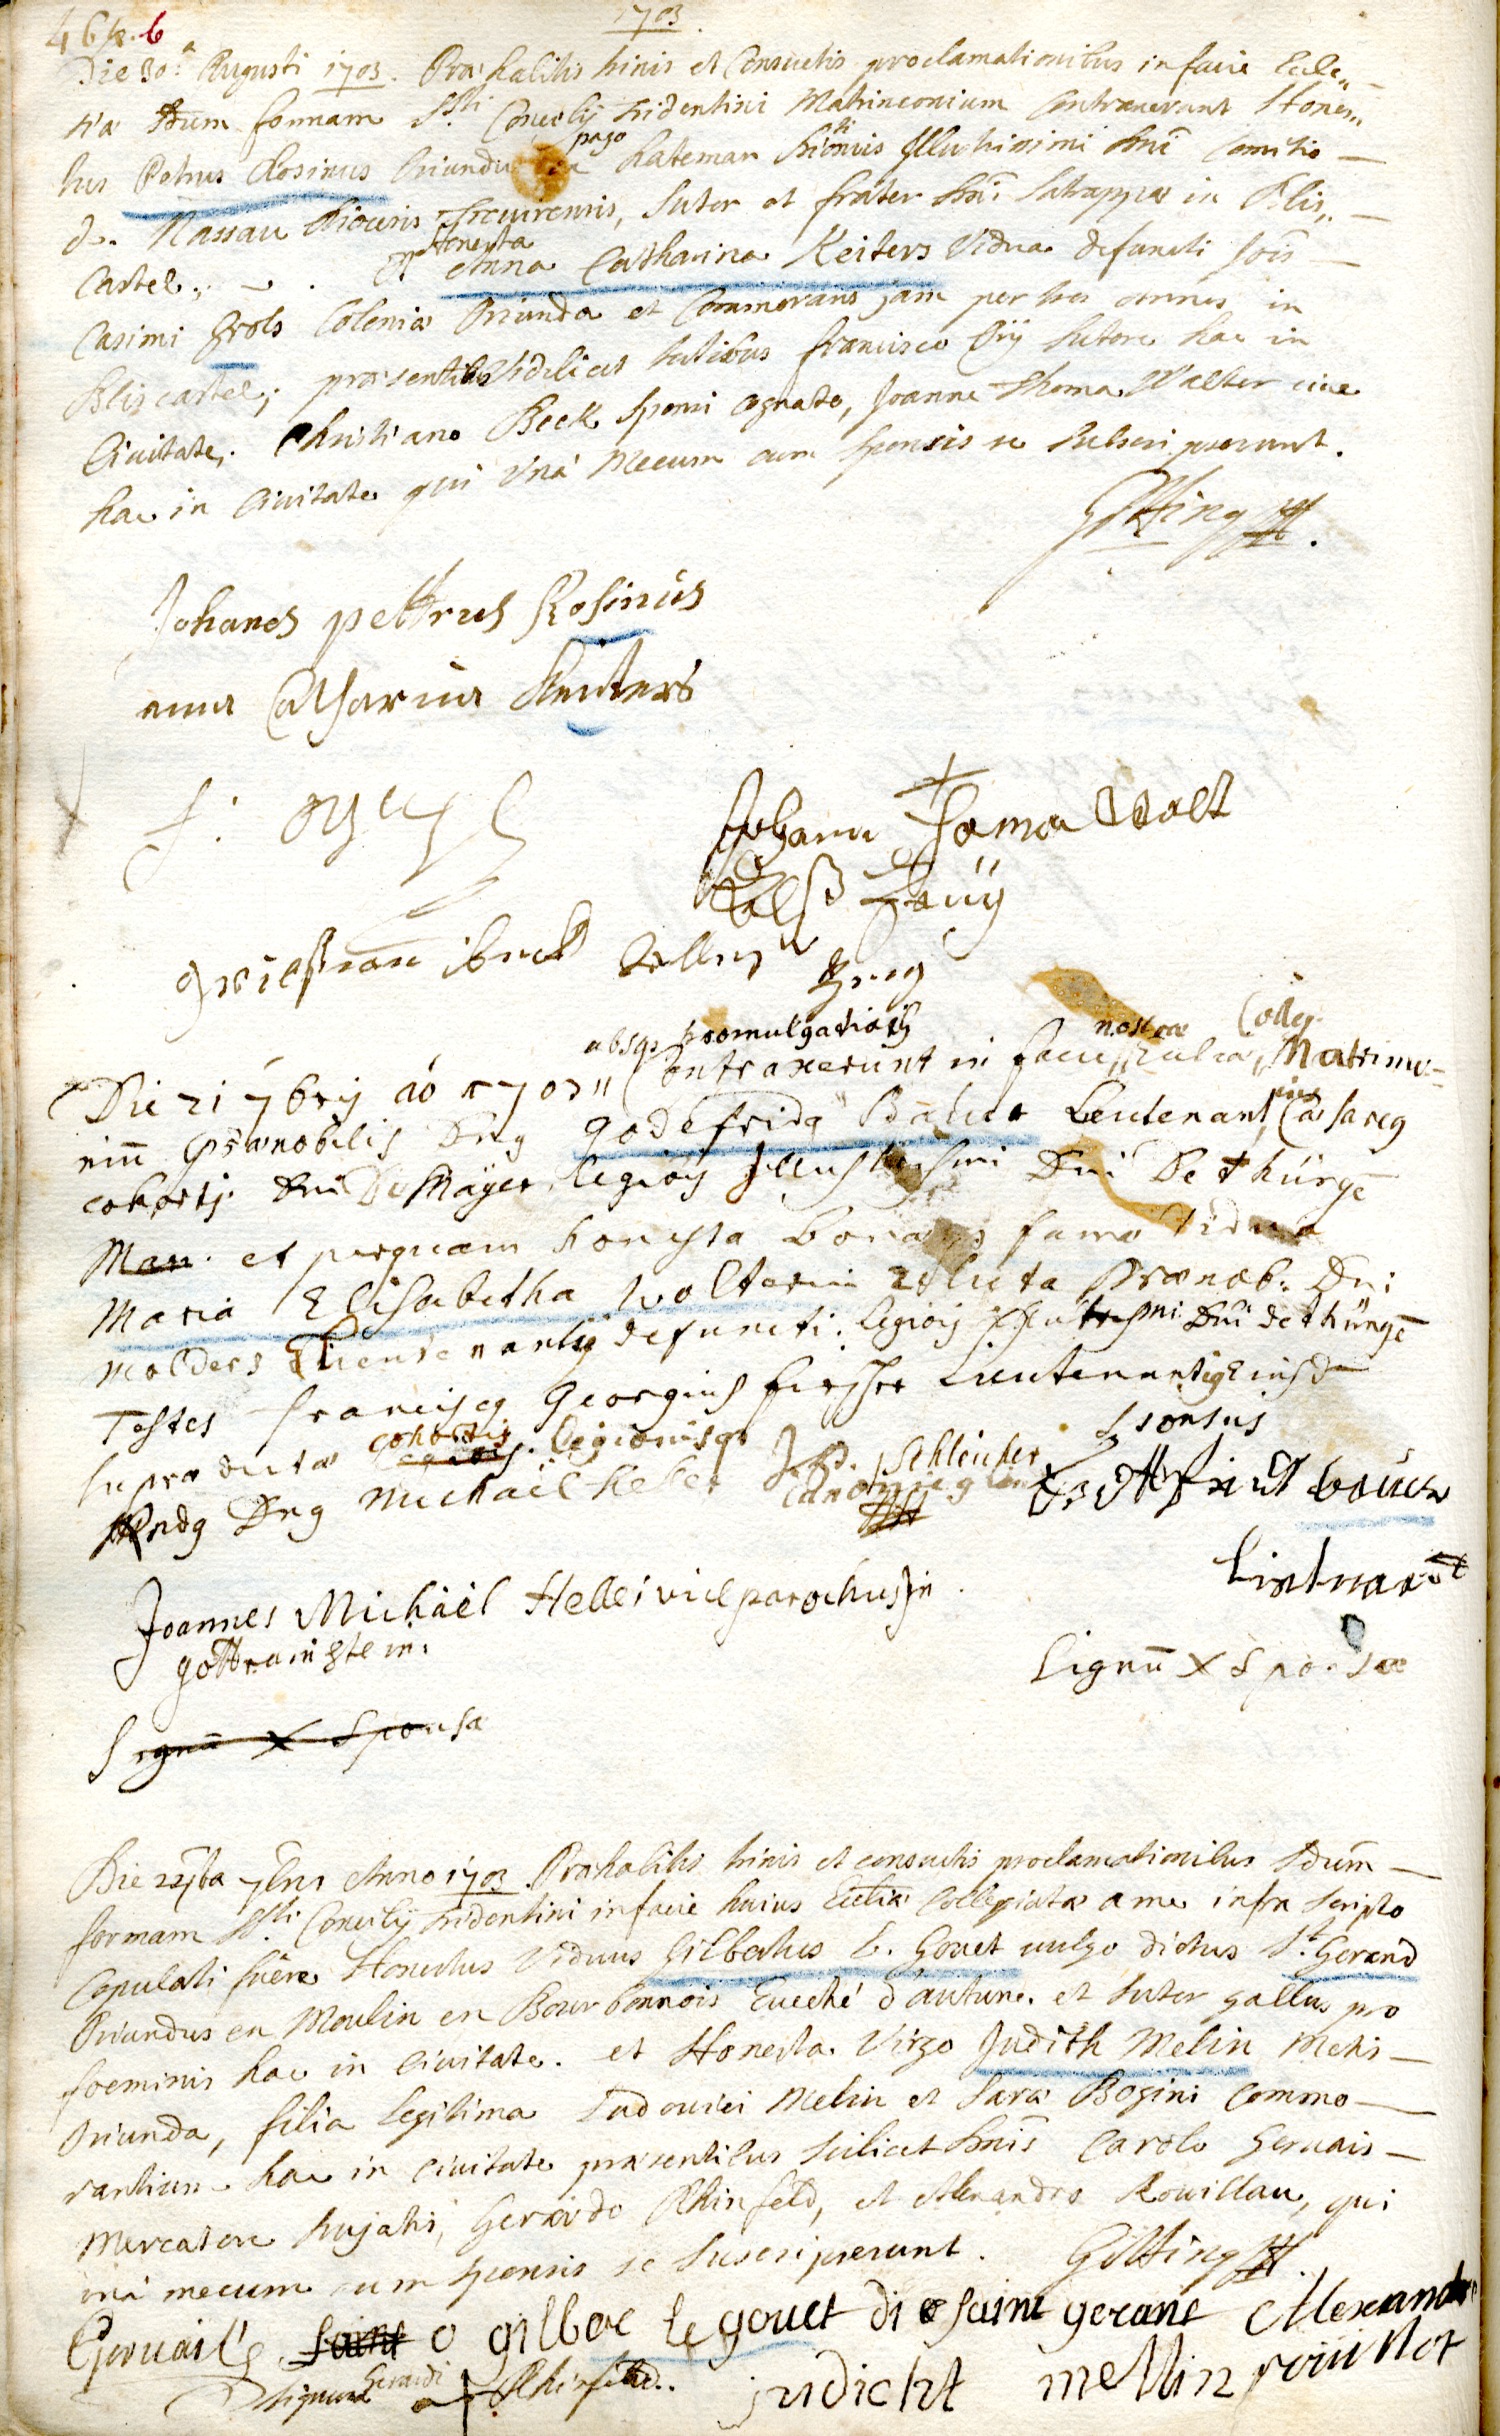 46 k. 6
1703.
Die 30.a Augusti 1703. Præhabitis trinis et Consuetis proclamationibus in facie Eccle„
siæ Sdum formam Ssti Concilij Tridentini Matrimonium Contraxerunt Hones„
tus Petrus Rosinus Oriundus in pago hateman Illustrissimi Dni Comitis
de Nassau Dioecesis Trevirensis, Sutor et frater Dni Satrappæ in Blis„
Castel; Et honesta Anna Catharina Keiters Vidua defuncti Jois
Casimi Grols Coloniæ Oriunda et Commorans jam per tres annos in
Bliscastel; præsentibus Videlicet testibus francisco Orÿ Sutore hac in
Civitate, Christiano Beck Sponsi cognato, Joanne Thoma Walter cive
hac in Civitate qui Vnà Mecum cum sponsis se subscripserunt.
Götting
Johanes pettrus Rosinus
anna Catharina Keuters
f. ory
Johann Thoma Walt
Alß Zeüÿ
ibeck
absq promulgationib
Die 21 7brij aö 1703 Contraxerunt in facie Ecclesiæ nostræ Colleg. Matrimo=
niu Prænobilis Dnq godefridq Leutenant Cæsareq
cohortis Dni De Mäyer, legiois Illustrissimi Dni De thüngē
Man. et perquam honesta bonæq famæ Vidua
Maria Elisabetha Woltarin relicta Prænob. Dni
Molders Lieutenantiq defuncti. legiois Illustrissmi Dni de thüngē
Testes franciscq Georgius fischer Lieutenantiq Eiusd
supradictæ legiois cohortis legionisq
Rndq Dnq Michaël Heller
J. P. Schleicher
Canonicq
Sponsus
Gottfridt
Lietnant
Joannes Michäel Heller vice parochus in
gottramstein.
Signū X Sponsæ
Signū X Sponsa
Die 7bris Anno 1703. Præhabitis trinis et consuetis proclamationibus Sdum
formam Ssti Concilij Tridentini in facie huius Eccliæ Collegiatæ a me infra scripto
Copulati fuêre Honestus Viduus Gilbertus L. Gouet vulgo dictus St. Gerand
Oriundus en Moulin en Bourbonnois Eueché d'autune. et sutor gallus pro
foeminis hac in Civitate. et Honesta Virgo Judith Melin Metis
Oriunda, filia legitima Ludovici Melin et Saræ Bogini Commo
rantium hac in Civitate præsentibus scilicet Dnis Carolo Gervais
Mercatore hujatis, Gerardo Rhinfeld, et Alexandro Rouillau, qui
unà mecum cum sponsis se suscripserunt.
Götting
Gervais
saint o gilber Le gouet di saint gerant Alexandre
signum Gerardi Rhinfeld.
judicht mellin rouillot